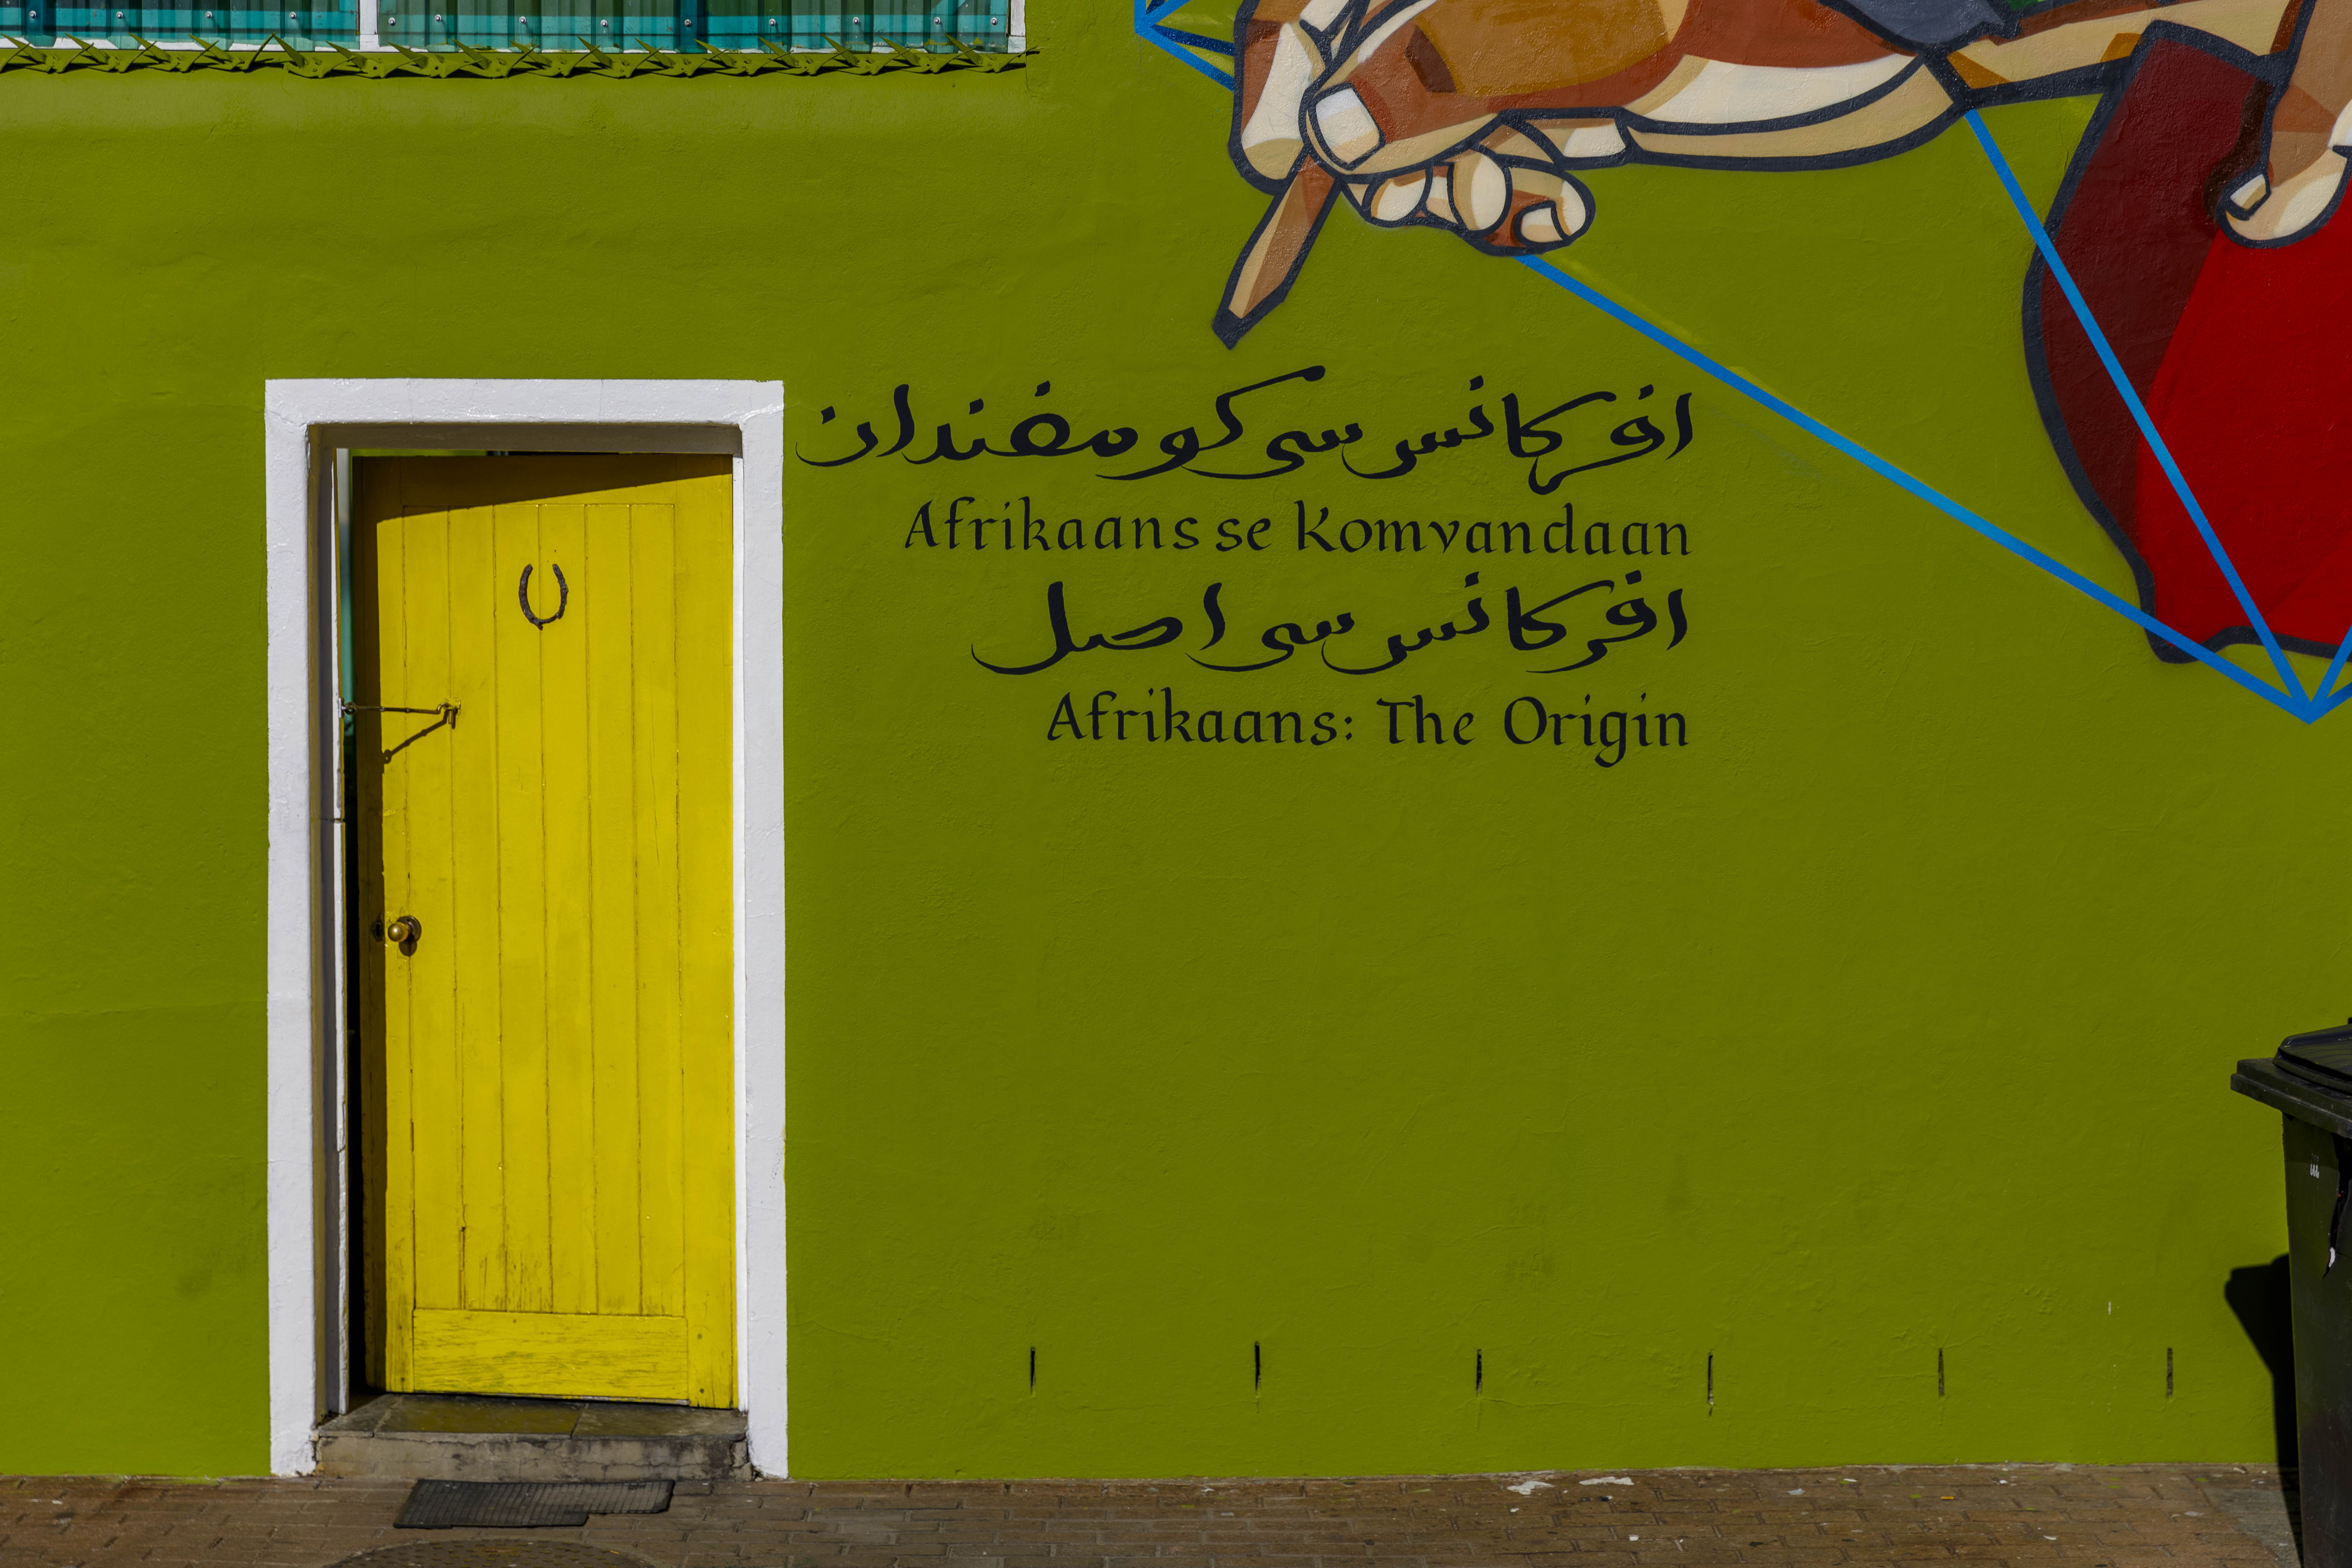 افركانس سى كومفندان
Afrikaans se Komvandaan
افركانس سى اصل
Afrikaans: The Origin